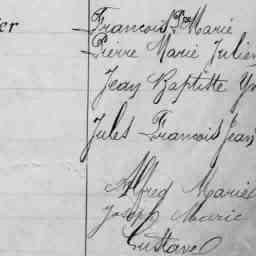 er
Francois P Marie
Pierre Marie Julien
Jean Baptiste
Jules Francois Jean
Alfred Marie
Joseph Marie
Gustave